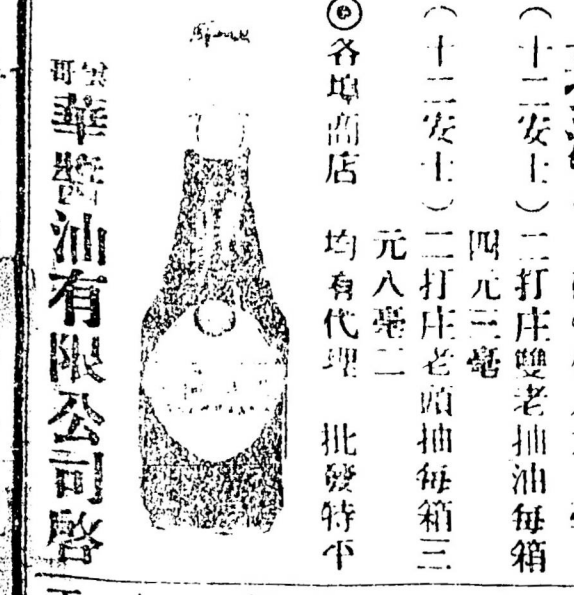 （十二安士）二打庄雙老抽油每箱
四元三毫
（十二安士）二打庄老頭抽每箱三
元八毫二
各埠商店 均有代理 批發特平
雲哥華醬油有限公司啓